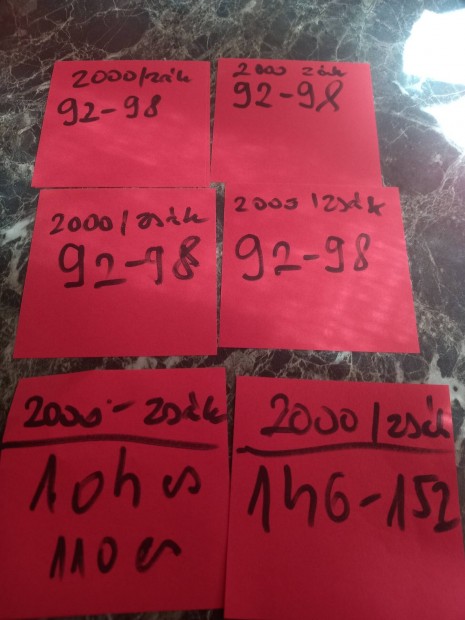 2000/zsák
92-98
2000 zsák
92-98
2000/zsák
92-98
2000/zsák
92-98
2000-zsák
104 es
110 es
2000/zsák
146-152